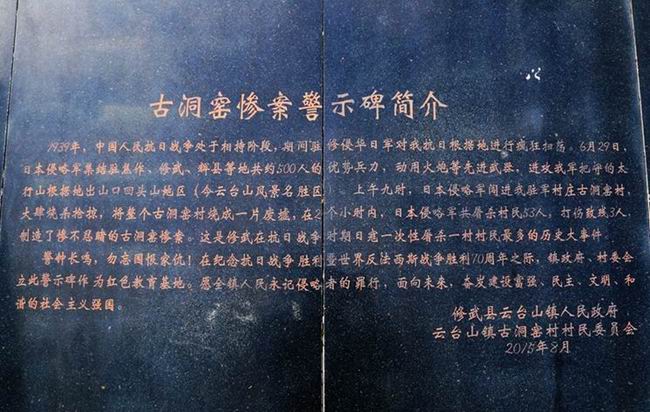 古洞窑惨案警示碑简介
1939年，中国人民抗日战争处于相持阶段，期间驻修侵华日军对我抗日根据地进行疯狂扫荡。6月29日，
日本侵略军集结驻焦作、修武、辉县等地共约500人的优势兵力，动用火炮等先进武器，进攻我军把守的太
行山根据地出山口回头山地区（今云台山风景名胜区）。上午九时，日本侵略军闯进我驻军村庄古洞窑村，
大肆烧杀抢掠，将整个古洞窑村烧成一片废墟，在2个小时内，日本侵略军共屠杀村民53人，打伤致残3人，
创造了惨不忍睹的古洞窑惨案。这是修武在抗日战争时期日寇一次性屠杀一村村民最多的历史大事件
警钟长鸣，勿忘国恨家仇！在纪念抗日战争胜利暨世界反法西斯战争胜利70周年之际，镇政府、村委会
立此警示碑作为红色教育基地。愿全镇人民永记侵略者的罪行，面向未来，奋发建设富强、民主、文明、和
谐的社会主义强国。
修武县云台山镇人民政府
云台山镇古洞窑村村民委员会
2015年8月